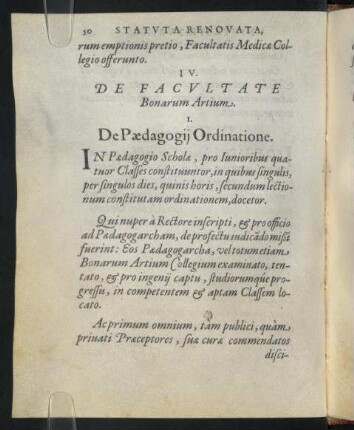 50 STATVTA RENOVATA,
rum emptionis pretio, Facultatis Medicæ Col-
legio offerunto.
IV.
DE FACVLTATE
Bonarum Artium.
I.
De Pædagogij Ordinatione.
IN Pædagogio Scholæ, pro Iunioribus qua-
tuor Classes constituuntor, in quibus singulis,
per singulos dies, quinis horis, secundum lectio-
num constitutam ordinationem, docetor.
Qui nuper à Rectore inscripti, & pro officio
ad Pædagogarcham, de profectu iudicãdo missi
fuerint: Eos Pædagogarcha, vel totum etiam
Bonarum Artium Collegium examinato, ten-
tato, & pro ingenij captu, studiorumque pro-
gressu, in competentem & aptam Classem lo-
cato.
Ac primum omnium, tàm publici, quàm
priuati Præceptores, suæ curæ commendatos
disci-